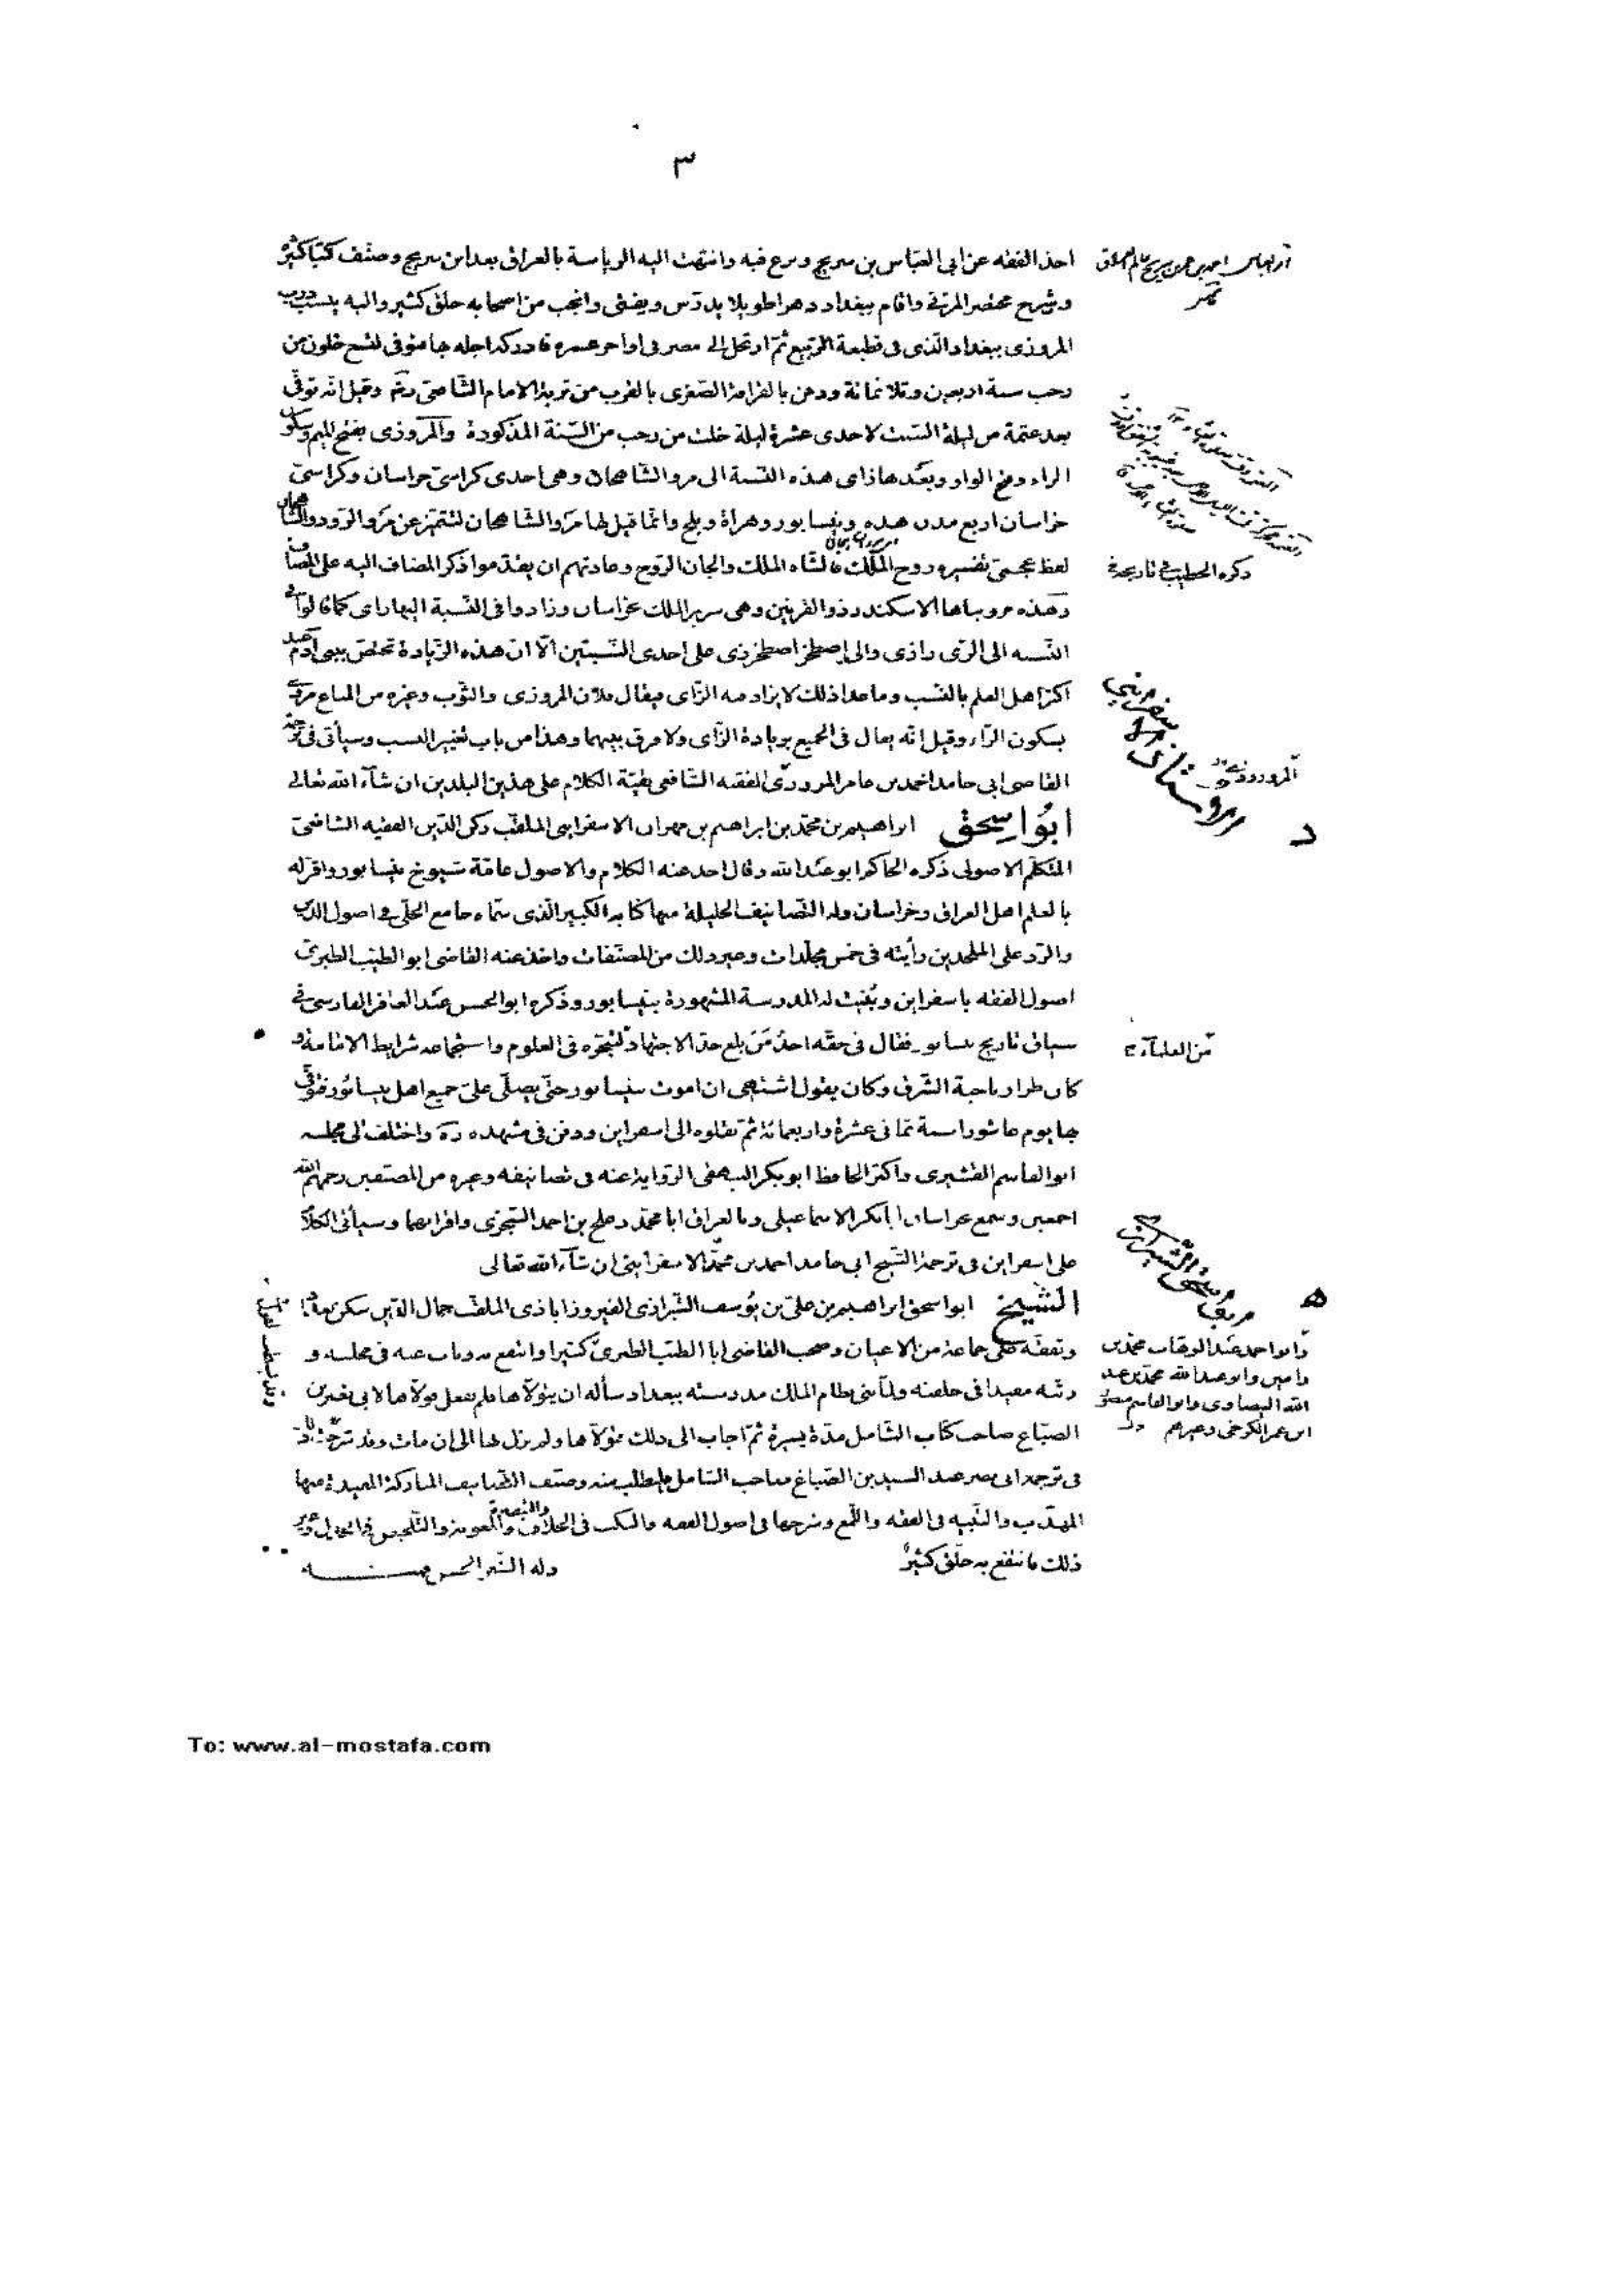 ٣
اخذ الفقه عن ابي العبّاس بن سريج وبرع فيه وانتهت اليه الرياسة بالعراق بعد ابن سريج وصنّف كتبًا كثيرة
وشرح مختصر المزني واقام ببغداد دهرا طويلا يدرّس ويفتى وانجب من اصحابه خلق كثير واليه ينسب درب
المروزى ببغداد الّذى فى قطيعة الرّبيع ثمّ ارتحل الى مصر فى اواخر عمره فادركه اجله بها فتوفى لتسع خلون من
رجب سنة اربعين وثلاثمائة ودفن بالقرافة الصّغرى بالقرب من تربة الامام الشّافعى رضه وقيل انّه توفّى
بعد عتمة من ليلة السّبت لاحدى عشرة ليلة خلت من رجب من السّنة المذكورة والمروزى بفتح الميم وسكون
الراء وفتح الواو وبعدها زاى هذه النّسبة الى مرو الشّاهجان وهى احدى كراسىّ خراسان وكراسىّ
خراسان اربع مدن هذه ونيسابور وهراة وبلخ وانّما قيل لها مرو الشاهجان لتتميّز عن مرو الرّوذ والشاهجان
لفظ عجمىّ تفسيره روح الملك فالشاه الملك والجان الرّوح وعادتهم ان يقدّموا ذكر المضاف اليه على المضاف
وهذه مرو بناها الاسكندر ذو القرنين وهى سرير الملك بخراسان وزادوا فى النّسبة اليها زاى كما قالوا فى
النّسبه الى الرّى رازى والى اصطخر اصطخرزى على احدى النّسبتين الّا ان هذه الزّيادة تختصّ ببنى آدم عند
اكثر اهل العلم بالنّسب وما عدا ذلك لا يزاد فيه الزّاى فيقال فلان المروزى والثّوب وغيره من المتاع مروىّ
بسكون الرّاء وقيل انّه يقال فى الجميع بزيادة الزّاى ولا فرق بينهما وهذا من باب تغيير النسب وسيأتى فى ترجمة
القاضى ابي حامد احمد بن عامر المروروذى الفقيه الشّافعى بقيّة الكلام على هذين البلدين ان شآء الله تعالى
ابُو اسحٰق ابراهيم بن محمّد بن ابراهيم بن مهران الاسفراينى الملقّب ركن الدّين الفقيه الشافعىّ
المتكلّم الاصولى ذكره الحاكم ابو عبد الله وقال اخذ عنه الكلام والاصول عامّة شيوخ نيسابور واقرّ له
بالعلم اهل العراق وخراسان وله التّصانيف الجليلة منها كتابه الكبير الّذى سمّاه جامع الحلّى فى اصول الدين
والرّد على الملحدين رأيته فى خمس مجلّدات وغير ذلك من المصنّفات واخذ عنه القاضى ابو الطيّب الطبرىّ
اصول الفقه باسفراين وبُنيت له المدرسة المشهورة بنيسابور وذكره ابو الحسن عبد الغافر الفارسى فى
سياق تاريخ نيسابور فقال فى حقّه احدُ مَن بلغ حدّ الاجتهاد لتبحّره فى العلوم واستجماعه شرايط الامامة و
كان طراز ناحية الشّرق وكان يقول اشتهى ان اموت بنيسابور حتّى يصلّى علىّ جميع اهل نيسابور فتوفّى
بها يوم عاشورا سنة ثمانى عشرة واربعمائة ثمّ نقلوه الى اسفراين ودفن فى مشهده ره واختلف الى مجلسه
ابو القاسم القشيرى واكثر الحافظ ابو بكر البيهقى الرّواية عنه فى تصانيفه وغيره من المصنّفين رحمهم الله
اجمعين وسمع بخراسان ابا بكر الاسماعيلى وبالعراق ابا محمّد دعلج بن احمد السّجزى واقرانهما وسيأتى الكلام
على اسفراين فى ترجمة الشّيخ ابى حامد احمد بن محمّد الاسفراينى ان شآء الله تعالى
الشّيخ ابو اسحق ابراهيم بن علىّ بن يُوسف الشّيرازى الفيروزاباذى الملقّب جمال الدّين سكن بغداد
وتفقّه على جماعة من الاعيان وصحب القاضى ابا الطّيّب الطبرىّ كثيرا وانتفع به وناب عنه فى مجلسه و
رتّبه معيدا فى حلقته ولمّا بنى نظام الملك مدرسته ببغداد سأله ان يتولّاها فلم يفعل فولّاها لابى نصر بن
الصبّاغ صاحب كتاب الشّامل مدّة يسيرة ثمّ اجاب الى ذلك فتولّاها ولم يزل بها الى ان مات وقد شرحت ذلك
فى ترجمة ابى نصر عبد السيد بن الصّباغ صاحب الشامل فليطلب منه وصنّف التّصانيف المباركة المفيدة منها
المهذّب والتّنبيه فى الفقه واللّمع وشرحها فى اصول الفقه والنكت فى الخلاف والتبصرة والمعونة والتّلخيص فى الجدل وغير
ذلك فانتفع به خلق كثيرٌ وله الشّعر الحسن فمنه
ذكره الخطيب فى تاريخه
المروروذى
د
من العلمآء
ه
وابو احمد عبد الوهّاب محمّد بن
رامين وابو عبد الله محمّد بن عبد
الله البيضاوى وابو القاسم منصور
ابن عمر الكرخى وغيرهم
To: www.al-mostafa.com